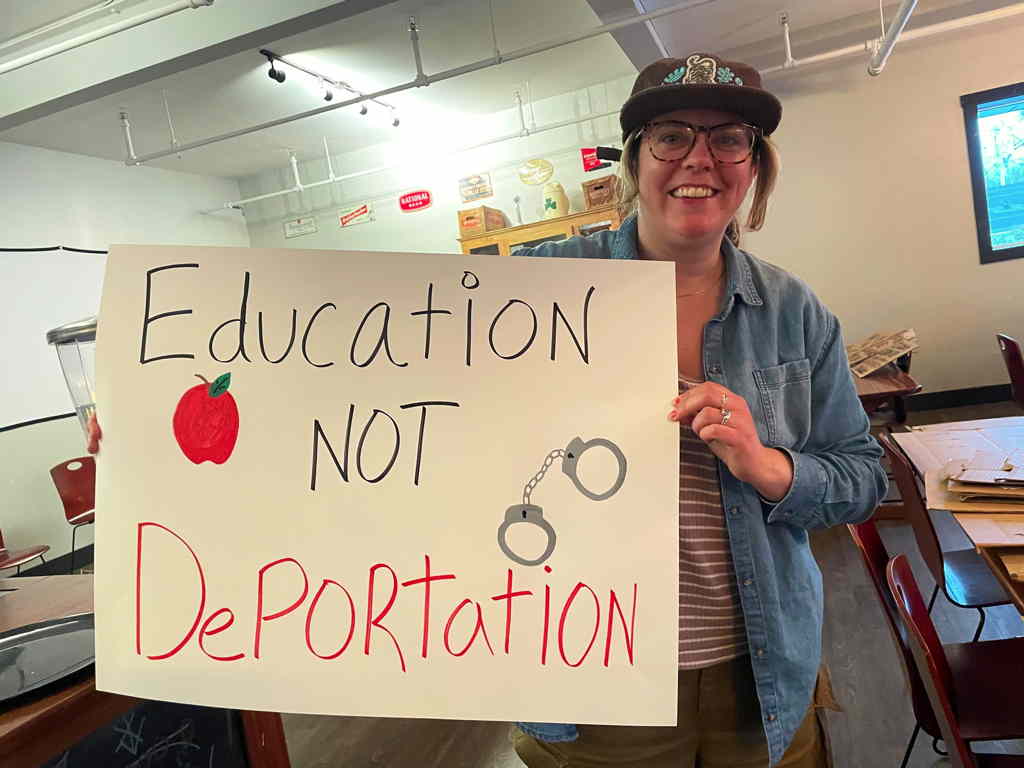 NATIONAL
EDucation
NOT
DePORtatiON